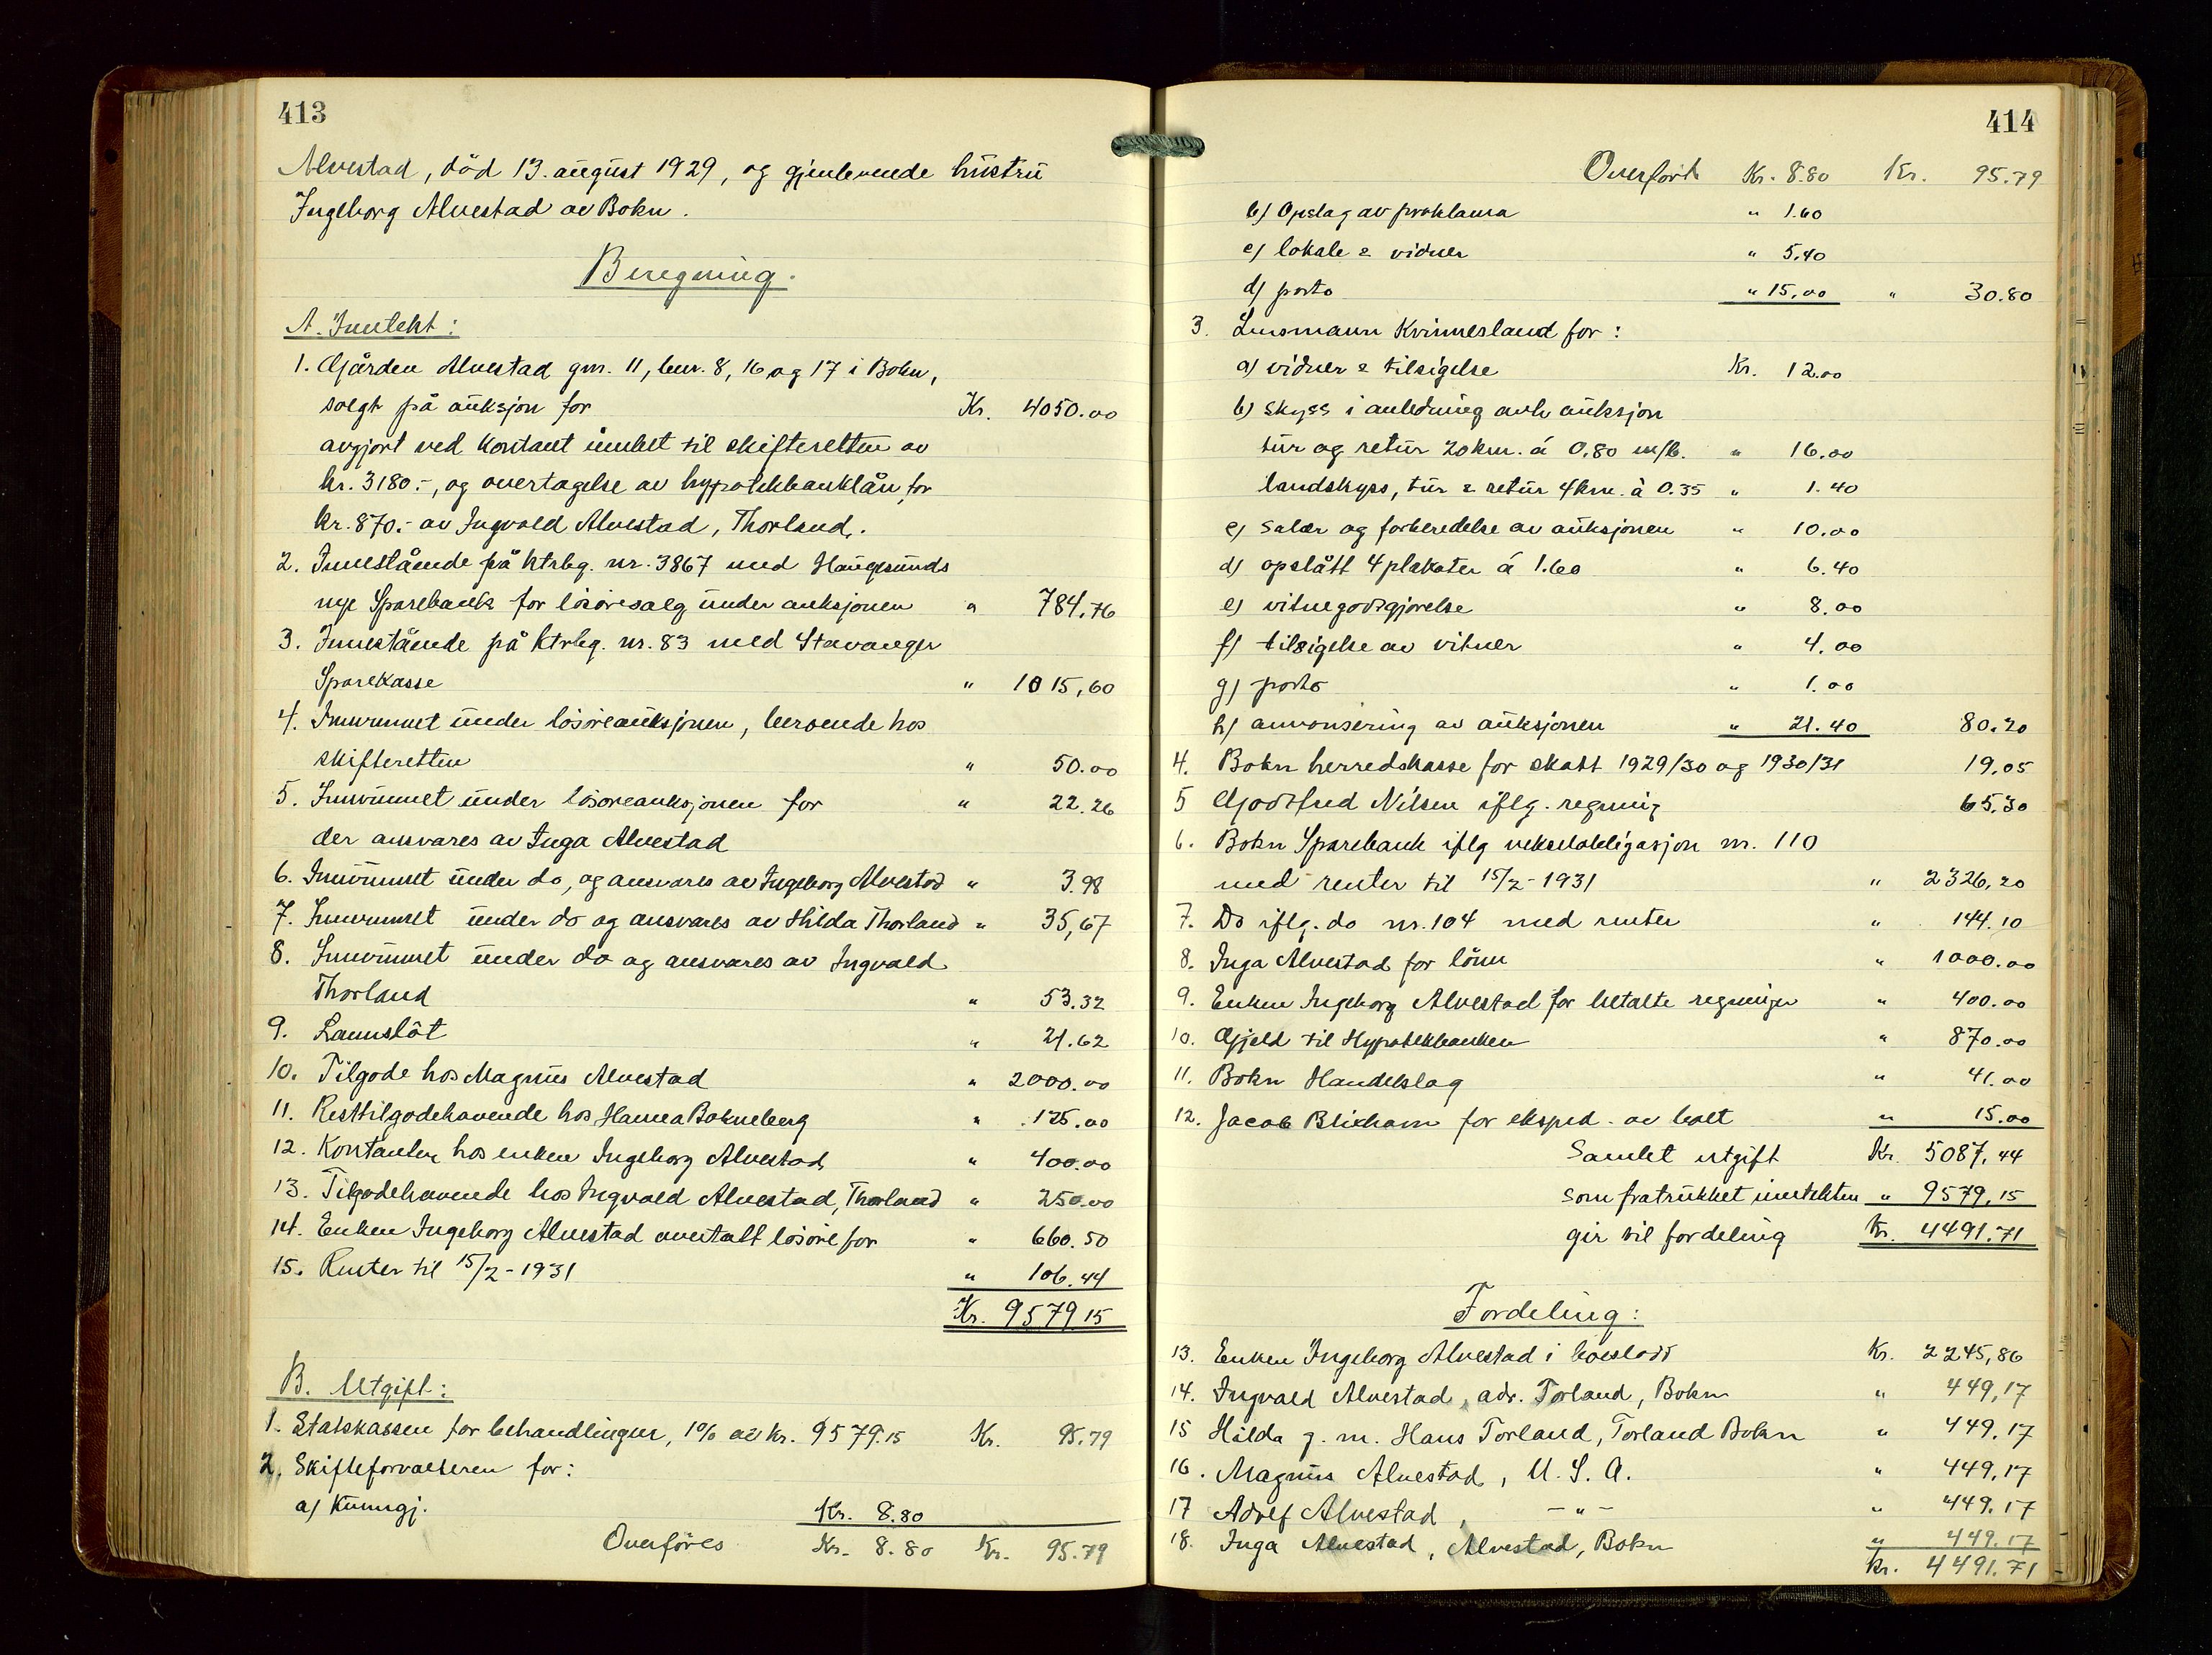 413
Alvestad, död 13. august 1929, og gjenlevende hustru
Ingeborg Alvestad av Bokn.
Beregning.
A. Inntekt:
1. Gården Alvestad gnr. 11, bnr. 8, 16 og 17 i Bokn,
solgt på auksjon for Kr. 4050.00
avgjort ved kontant innbet til skifteretten av
kr. 3180.-, og overtagelse av hypotekbanklån for
kr. 870.- av Ingvald Alvestad, Thorland.
2. Innestående på ktrbg. nr. 3867 med Haugesunds
nye Sparebank for lösöresalg under auksjonen " 784.76
3. Innestående på ktrbg. nr. 83 med Stavanger
Sparekasse " 1015,60
4. Innvunnet under lösöreauksjonen, beroende hos
skifteretten " 50.00
5. Innvunnet under lösöreauksjonen for " 22.26
der ansvares av Inga Alvestad
6. Innvunnet under do, og ansvares av Ingeborg Alvestad " 3.98
7. Innvunnet under do og ansvares av Hilda Thorland " 35,67
8. Innvunnet under do og ansvares av Ingvald
Thorland " 53.32
9. Lannslöt " 21.62
10. Tilgode hos Magnus Alvestad " 2000.00
11. Resttilgodehavende hos Hanna Bokneberg " 125.00
12. Kontanter hos enken Ingeborg Alvestad " 400.00
13. Tilgodehavende hos Ingvald Alvestad, Thorland " 250.00
14. Enken Ingeborg Alvestad overtatt lösöre for " 660.50
15. Renter til 15/2-1931 " 106.44
Kr. 9579 15
B. Utgift:
1. Statskassen for behandlingen, 1% av kr. 9579.15 Kr. 95.79
2. Skifteforvalteren for:
a) Kunngj. Kr. 8.80
Overföres Kr. 8.80 Kr. 95.79
414
Overfört Kr. 8.80 Kr. 95.79
b) Opslag av proklama " 1.60
c) lokale & vidner " 5.40
d) porto " 15.00 " 30.80
3. Lensmann Kvinnesland for:
a) vidner & tilsigelse Kr. 12.00
b) skyss i anledning avh auksjon
tur og retur 20 km. á 0.80 m/b. " 16.00
landskyss, tur & retur 4 km. à 0.35 " 1.40
c) salær og forberedelse av auksjonen " 10.00
d) opslått 4 plakater á 1.60 " 6.40
e) vitnegodtgjörelse " 8.00
f) tilsigelse av vitner " 4.00
g) porto " 1.00
h) annonsering av auksjonen " 21.40 80.20
4. Bokn herredskasse for skatt 1929/30 og 1930/31 19.05
5 Godtfred Nilsen iflg. regning 65.30
6. Bokn Sparebank iflg vekselobligasjon nr. 110
med renter til 15/2-1931 " 2326,20
7. Do iflg. do nr. 104 med renter " 144.10
8. Inga Alvestad for lönn " 1000.00
9. Enken Ingeborg Alvestad for betalte regninger " 400.00
10. Gjeld til Hypotekbanken " 870.00
11. Bokn Handelslag " 41.00
12. Jacob Blixhavn for eksped. av balt " 15.00
Samlet utgift Kr. 5087,44
som fratrukket inntekten " 9579,15
gir til fordeling Kr. 4491.71
Fordeling:
13. Enken Ingeborg Alvestad i boeslodd Kr. 2245,86
14. Ingvald Alvestad, adr. Torland, Bokn " 449,17
15 Hilda g. m. Hans Torland, Torland Bokn " 449.17
16. Magnus Alvestad, U. S. A. " 449,17
17 Adolf Alvestad, - " - " 449.17
18. Inga Alvestad, Alvestad, Bokn " 449.17
Kr. 4491.71